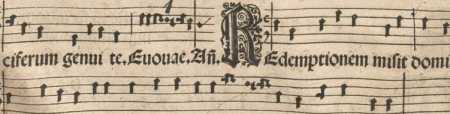 ciferum genui te. Euouae. Añ. REdemptionem misit domi